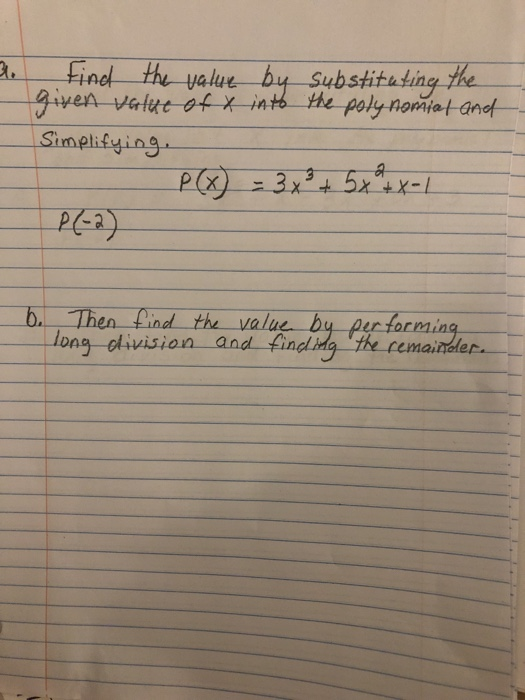 a. Find the value by substituting the
given value of x into the polynomial and
Simplifying.
P(x) = 3x³ + 5x² + x - 1
P(-2)
b. Then find the value by performing
long division and finding the remainder.